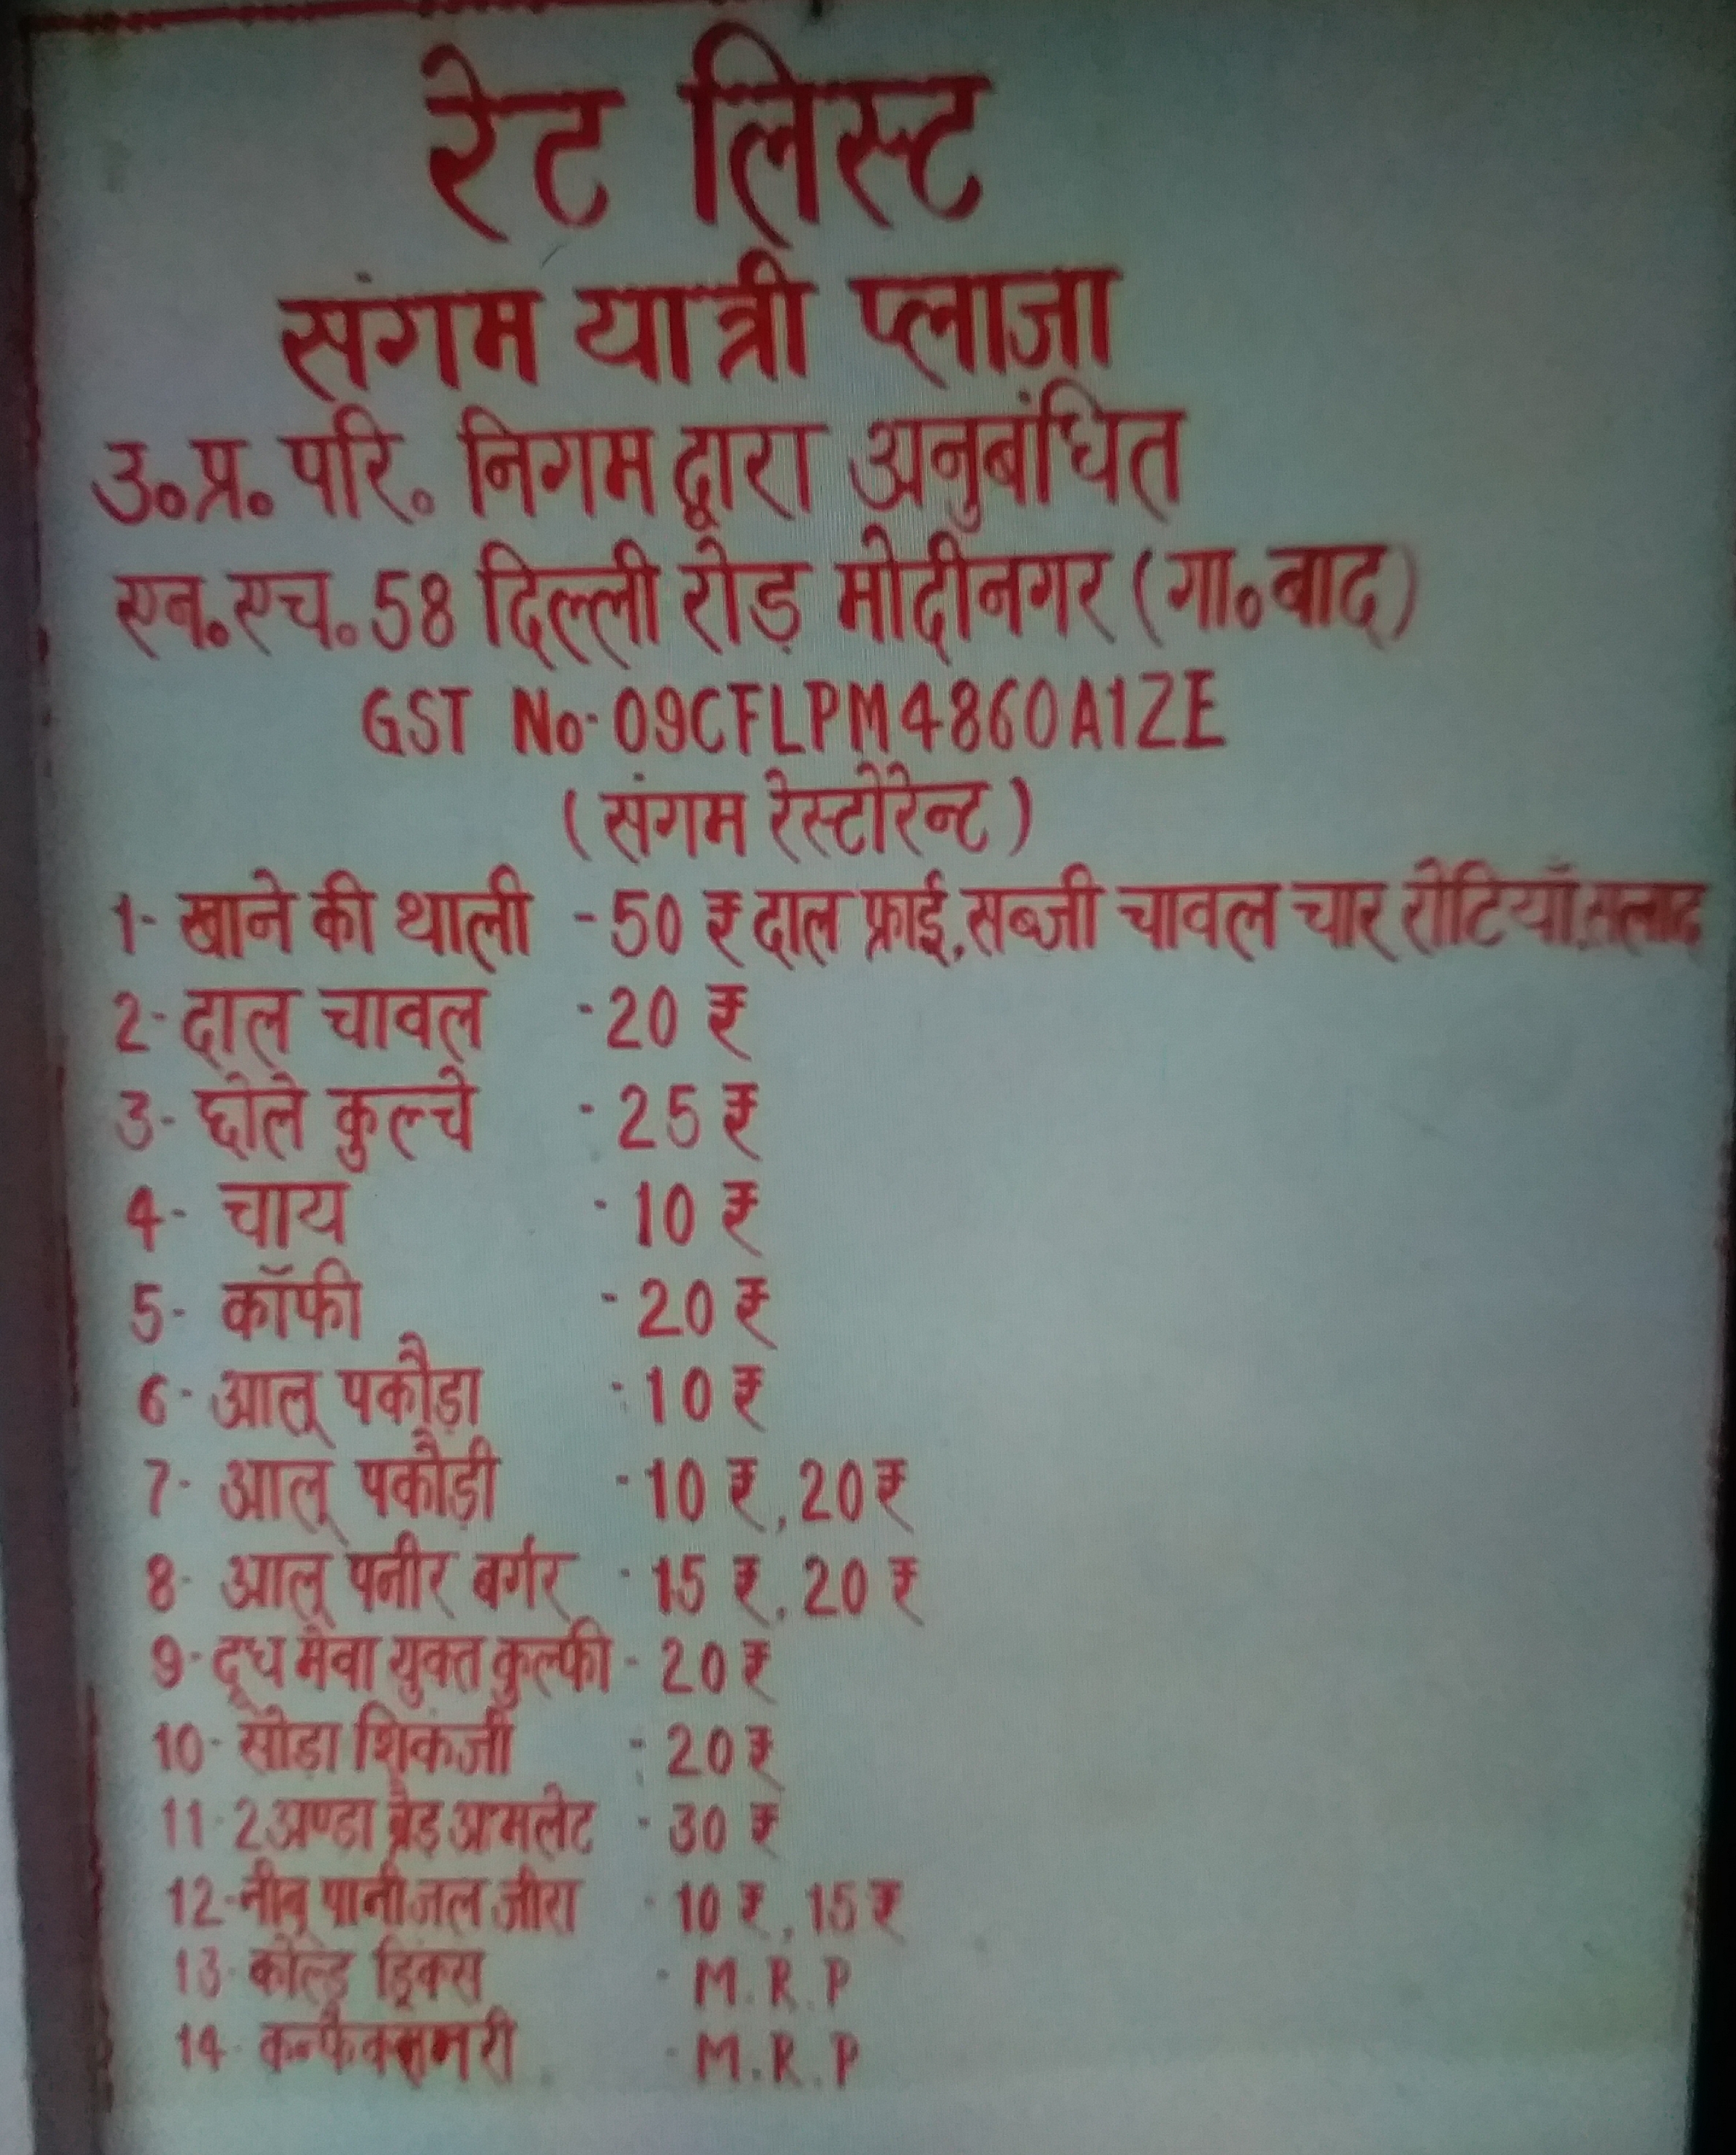 रेट लिस्ट
संगम यात्री प्लाजा
उ॰प्र॰ परि॰ निगम द्वारा अनुबंधित
एन॰एच॰58 दिल्ली रोड़ मोदीनगर (गा॰बाद)
GST No-09CFLPM4860A1ZE
(संगम रेस्टोरेन्ट)
1- खाने की थाली - 50 ₹ दाल फ्राई, सब्जी चावल चार रोटियाँ, सलाद
2- दाल चावल - 20 ₹
3- छोले कुल्चे - 25 ₹
4- चाय - 10 ₹
5- कॉफी - 20 ₹
6- आलू पकौड़ा - 10 ₹
7- आलू पकौड़ी - 10 ₹, 20 ₹
8- आलू पनीर बर्गर - 15 ₹, 20 ₹
9- दूध मेवा युक्त कुल्फी - 20 ₹
10- सोडा शिकंजी - 20 ₹
11- 2 अण्डा ब्रैड आमलेट - 30 ₹
12- नीबू पानी जल जीरा - 10 ₹, 15 ₹
13- कोल्ड ड्रिंक्स - M.R.P
14- कन्फैक्सनरी - M.R.P